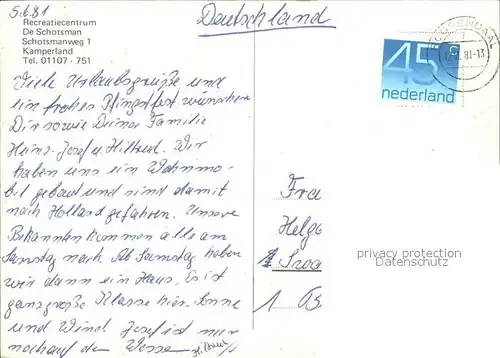 5.6.81
Recreatiecentrum
De Schotsman
Schotsmanweg 1
Kamperland
Tel. 01107 - 751
Deutschland
81-13
45c
nederland
Viele Urlaubsgrüße und
ein frohes Pfingstfest wünschen
Dir sowie Deiner Familie
Heinz-Josef u. Hiltrud. Wir
haben uns ein Wohnmo-
bil gebaut und sind damit
nach Holland gefahren. Unsere
Bekannten kommen alle am
Samstag nach. Ab Samstag haben
wir dann ein Haus. Es ist
ganz große Klasse hier. Sonne
und Wind. Josef ist nur
noch auf dem Wasser
Hiltrud
Fra
Helga
privacy protection
Datenschutz
1